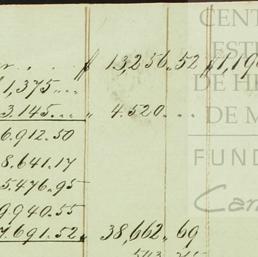 13,256..52 $1,19
$1,375....
3.145... 4.520...
6.912.50
8.641.17
5.476.95
9.940.55
7.691.52 38,662..69
CENT
ESTE
DE HI
DE M
FUND
Car